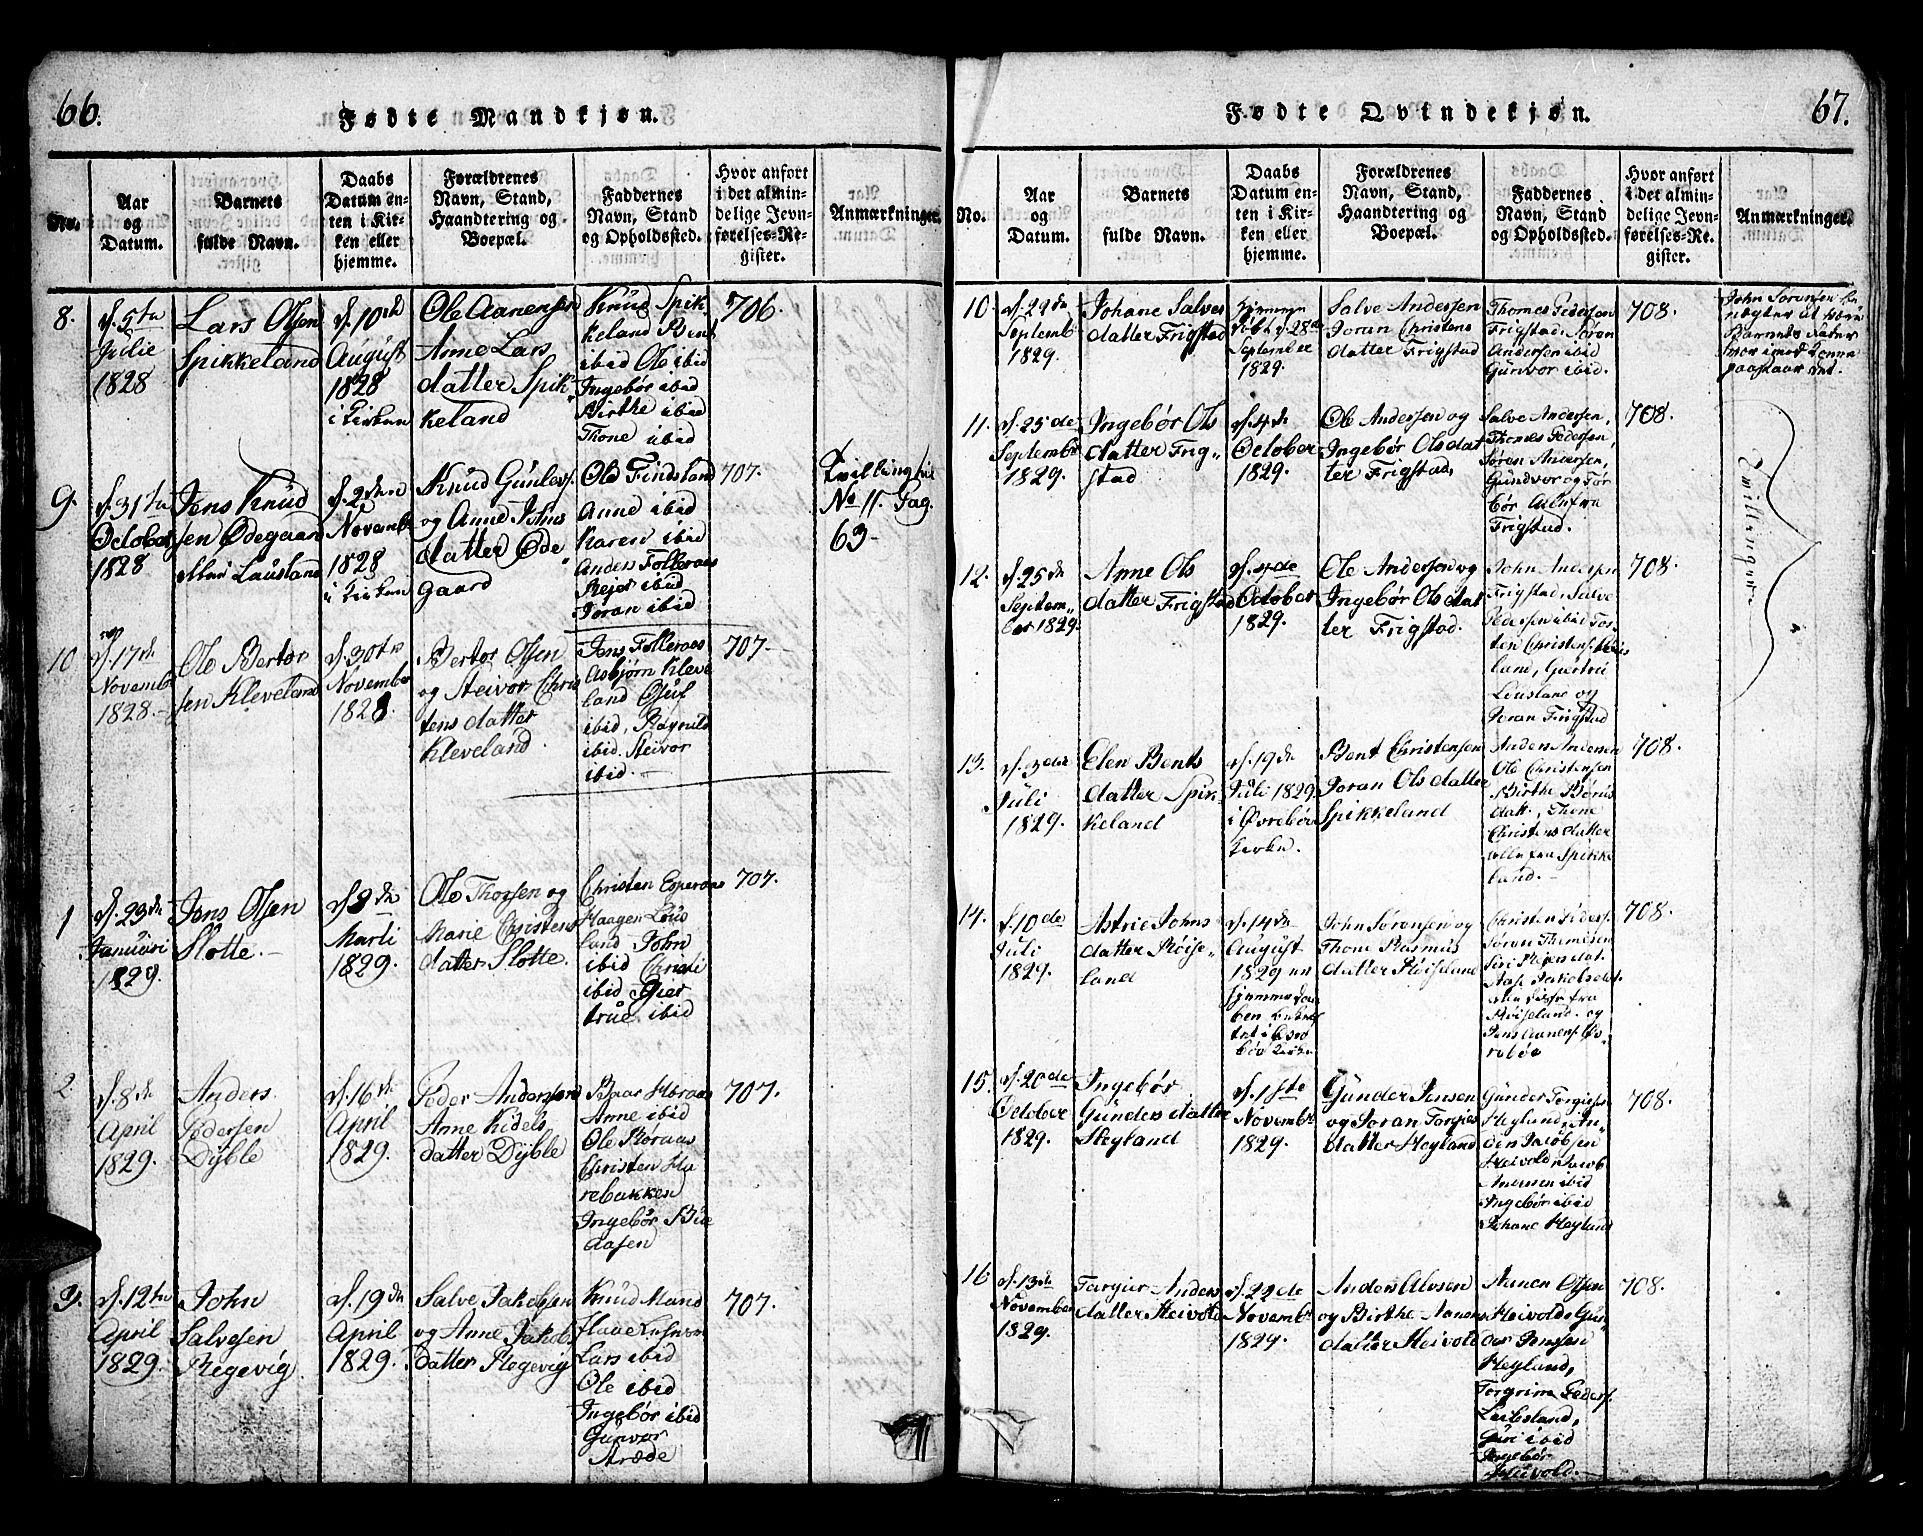 66.
Fødte Mandkjøn.
No.
Aar
og
Datum.
Barnets
fulde Navn.
Daabs
Datum en-
ten i Kir-
ken eller
hjemme.
Forældrenes
Navn, Stand,
Haandtering og
Boepæl.
Faddernes
Navn, Stand
og Opholdssted.
Hvor anført
i det almin-
delige Jevn-
førelses-Re-
gister.
Anmærkninger.
8.
d. 5te
Julie
1828
Lars Olsen
Spikkeland
d. 10de
August
1828
i Kirken
Ole Aanensen
Anne Lars
datter Spik-
keland
Knud Spik
keland Bent
ibid Ole ibid
Ingebör ibid
Birthe ibid
Thone ibid
706
9.
d. 31te
October
1828
Jens Knud
sen Ødegaard
eller Lausland
d. 2den
Novembr
1828
i Kirken
Knud Gunlevs.
og Anne Johns
datter Øde
gaard
Ole Findsland
Anne ibid
Karen ibid
Anders Følleraas
Rejer ibid
Joran ibid
707.
No 11. Pag.
63
10
d. 17de
Novembr
1828.
Ole Berthor
sen Kleveland
d. 30te
Novembr
1828.
Bertor Olsen
og Steivor Chris
tens datter
Kleveland.
Jens Følleraas
Asbjørn Kleve
land Osuf
ibid, Ragnild
ibid. Steivor
ibid.
707.
1
d. 23de
Januari
1829.
Jens Olsen
Slotte.
d. 8de
Marti
1829.
Ole Thorsen og
Marie Christens
datter Slotte.
Christen Esperaas
Haagen Lous
land John
ibid Christi
ibid Gjer
trüe ibid
707.
2
d. 8de
April
1829.
Anders
Pedersen
Dÿble
d. 16de
April
1829.
Peder Andersen
Anne Kidels
datter Dÿble
Baar Horaas
Anne ibid
Ole Røraas
Christen Ha
rebakken
Ingebør Bue
aasen
707.
3.
d. 12te
April
1829.
John
Salvesen
Regevig
d. 19de
April
1829.
Salve Jakobsen
og Anne Jakobs
datter Regevig
Knud Mand
Lars ibid
Ole ibid
Ingebør ibid
Gunvor
Stræde
707.
67.
Fødte Qvindekjøn.
No.
Aar
og
Datum.
Barnets
fulde Navn.
Daabs
Datum en-
ten i Kir-
ken eller
hjemme.
Forældrenes
Navn, Stand,
Haandtering og
Boepæl.
Faddernes
Navn, Stand
og Opholdssted.
Hvor anført
i det almin-
delige Jevn-
førelses-Re-
gister.
Anmærkninger.
10.
d. 22de
Septembr
1829.
Johane Salves
datter Frigstad
hjemme
døbt d. 28de
September
1829.
Salve Andersen
Joran Christens
datter Frigstad
Thomes Pedersen
Frigstad. Søren
Andersen ibid
Gunvor ibid.
708.
John Sørensen be
nægter at være
Barnets Fader
hvorimod Konen
paastaar det.
11.
d. 25de
Septembr
1829.
Ingebør Ols
datter Frig„
stad
d. 4de
October
1829.
Ole Andersen og
Ingebør Olsdat
ter Frigstad,
Salve Andersen,
Thomes Pedersen,
Søren Andersen,
Gundvor og Tor
bør Alle fra
Frigstad.
708.
Tvillinger
12.
d. 25de
Septem„
ber 1829.
Anne Ols
datter Frigstad
d. 4de
October
1829.
Ole Andersen og
Ingebør Olsdat
ter Frigstad.
John Andersen
Frigstad, Salve
Pedersen ibid Tor
Lousland og
Joran Frigstad
708.
13.
d. 3die
Juli
1829.
Elen Bents
datter Spik
keland
d. 19de
Juli 1829
i Øvrebøe
Kirke.
Bent Christensen
Joran Olsdatter
Spikkeland
Anders Andersen
Ole Christensen
Birthe Børus
datt., Thone
Christens datter
alle fra Spikke
land.
708.
14.
d. 10de
Juli
1829.
Astrie Johns
datter Røise„
land
d. 14de
August
1829 en
hjemmedaa
ben bekræf
tet i Øvre
bøe Kirke
John Sørensen og
Thone Rasmus
datter Røiseland
Christen Peders.
alle disse fra
Røiseland. og
Jens Aanens. Øv
rebøe
708.
15.
d. 20de
October
1829.
Ingebør
Gunders datter
Heyland
d. 1ste
Novembr
1829.
Gunder Jensen
og Joran Torgies
datter Heyland
Gunder Torgiesen
Heyland, An„
ders Jacobsen
Heivold, Jacob
Andersen ibid
Ingebør ibid
Johane Heyland
708.
16
d. 13de
November
1829.
Torgier Anders
datter Heivold
d. 22de
Novembr
1829.
Anders Alvsen
og Birthe Aanens
datter Heivold
Aanen Olsen
Heivold, Gun„
der Jensen
Heyland,
Torgrim Peders.
Laibsland,
Guri ibid
Ingebør
Heivold.
708.